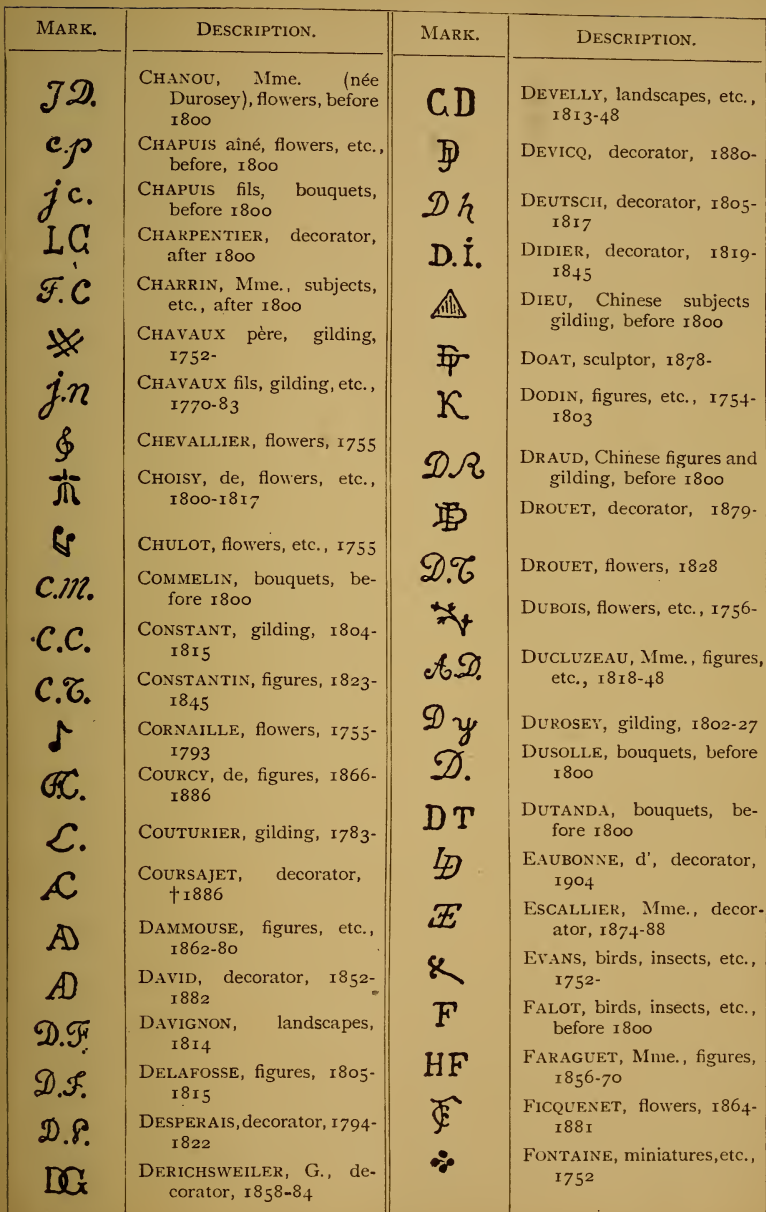 MARK. DESCRIPTION.
J D. CHANOU, Mme. (née
Durosey), flowers, before
1800
c.p CHAPUIS aîné, flowers, etc.,
before, 1800
j c. CHAPUIS fils, bouquets,
before 1800
LG CHARPENTIER, decorator,
after 1800
F. C CHARRIN, Mme., subjects,
etc., after 1800
CHAVAUX père, gilding,
1752-
j.n CHAVAUX fils, gilding, etc.,
1770-83
CHEVALLIER, flowers, 1755
CHOISY, de, flowers, etc.,
1800-1817
CHULOT, flowers, etc., 1755
C.M. COMMELIN, bouquets, be-
fore 1800
C.C. CONSTANT, gilding, 1804-
1815
C.T. CONSTANTIN, figures, 1823-
1845
CORNAILLE, flowers, 1755-
1793
COURCY, de, figures, 1866-
1886
COUTURIER, gilding, 1783-
AC COURSAJET, decorator,
†1886
AD DAMMOUSE, figures, etc.,
1862-80
AD DAVID, decorator, 1852-
1882
D.F. DAVIGNON, landscapes,
1814
D.f. DELAFOSSE, figures, 1805-
1815
D.P. DESPERAIS, decorator, 1794-
1822
DG DERICHSWEILER, G., de-
corator, 1858-84
MARK. DESCRIPTION.
CD DEVELLY, landscapes, etc.,
1813-48
DEVICQ, decorator, 1880-
D h DEUTSCH, decorator, 1805-
1817
D.I. DIDIER, decorator, 1819-
1845
DIEU, Chinese subjects
gilding, before 1800
DOAT, sculptor, 1878-
K DODIN, figures, etc., 1754-
1803
DR DRAUD, Chinese figures and
gilding, before 1800
DROUET, decorator, 1879-
D.T DROUET, flowers, 1828
DUBOIS, flowers, etc., 1756-
A.D. DUCLUZEAU, Mme., figures,
etc., 1818-48
D y DUROSEY, gilding, 1802-27
D. DUSOLLE, bouquets, before
1800
DT DUTANDA, bouquets, be-
fore 1800
LD EAUBONNE, d', decorator,
1904
ESCALLIER, Mme., decor-
ator, 1874-88
EVANS, birds, insects, etc.,
1752-
F FALOT, birds, insects, etc.,
before 1800
HF FARAGUET, Mme., figures,
1856-70
FICQUENET, flowers, 1864-
1881
FONTAINE, miniatures, etc.,
1752